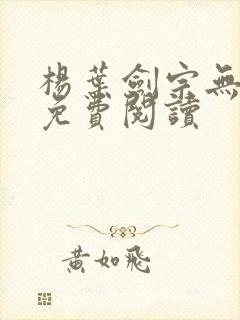 楊葉劍宗無
免費閱讀
黃如飛